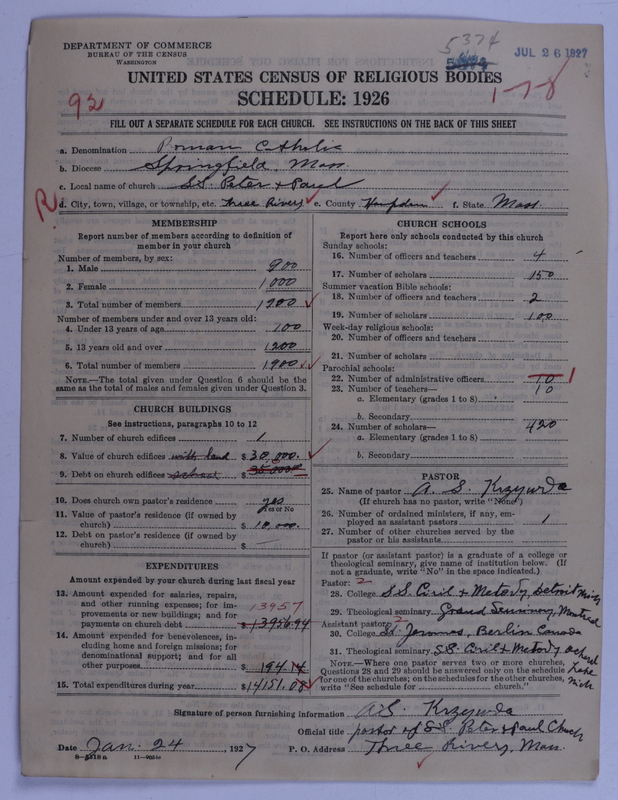 DEPARTMENT OF COMMERCE
BUREAU OF THE CENSUS
WASHINGTON
5374
JUL 26 1927
UNITED STATES CENSUS OF RELIGIOUS BODIES
SCHEDULE: 1926
92
1-78
FILL OUT A SEPARATE SCHEDULE FOR EACH CHURCH. SEE INSTRUCTIONS ON THE BACK OF THIS SHEET
a. Denomination Roman Catholic
b. Diocese Springfield, Mass.
c. Local name of church SS. Peter & Paul
R
d. City, town, village, or township, etc. Three Rivers e. County Hampden f. State Mass.
MEMBERSHIP
Report number of members according to definition of
member in your church
Number of members, by sex:
1. Male 900
2. Female 1000
3. Total number of members 1900
Number of members under and over 13 years old:
4. Under 13 years of age
5. 13 years old and over
6. Total number of members 1900
NOTE.—The total given under Question 6 should be the
same as the total of males and females given under Question 3.
CHURCH BUILDINGS
See instructions, paragraphs 10 to 12
7. Number of church edifices 1
8. Value of church edifices with land $30,000.
9. Debt on church edifices school $
10. Does church own pastor's residence yes
Yes or No
11. Value of pastor's residence (if owned by
church) $10,000.
12. Debt on pastor's residence (if owned by
church) $ —
EXPENDITURES
Amount expended by your church during last fiscal year
13. Amount expended for salaries, repairs,
and other running expenses; for im-
provements or new buildings; and for
payments on church debt $13956.94
13957
14. Amount expended for benevolences, in-
cluding home and foreign missions; for
denominational support; and for all
other purposes 194.14
15. Total expenditures during year $14151.08
CHURCH SCHOOLS
Report here only schools conducted by this church
Sunday schools:
16. Number of officers and teachers 4
17. Number of scholars 150
Summer vacation Bible schools:
18. Number of officers and teachers 2
19. Number of scholars 100
Week-day religious schools:
20. Number of officers and teachers
21. Number of scholars
Parochial schools:
22. Number of administrative officers 10 1
23. Number of teachers— 10
a. Elementary (grades 1 to 8)
b. Secondary
24. Number of scholars— 420
a. Elementary (grades 1 to 8)
b. Secondary
PASTOR
25. Name of pastor A. S. Krzywda
(If church has no pastor, write "None")
26. Number of ordained ministers, if any, em-
ployed as assistant pastors 1
27. Number of other churches served by the
pastor or his assistants
If pastor (or assistant pastor) is a graduate of a college or
theological seminary, give name of institution below. (If
not a graduate, write "No" in the space indicated.)
Pastor: 2
28. College SS Ciril & Metody, Detroit Mich
29. Theological seminary Grand Seminary, Montreal
Assistant pastor: 2
30. College St. Jeromes, Berlin Canada
31. Theological seminary SS. Ciril & Metody Orchard Lake Mich
NOTE.—Where one pastor serves two or more churches,
Questions 28 and 29 should be answered only on the schedule
for one of the churches; on the schedules for the other churches,
write "See schedule for church."
Signature of person furnishing information A. S. Krzywda
Official title pastor of SS. Peter & Paul Church
Date Jan. 24, 1927 P. O. Address Three Rivers, Mass.